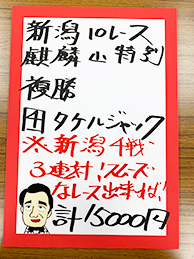 新潟10レース
麒麟山特別
複勝
団タケルジャック
※新潟4戦
3連対!スムーズ
なレース出来れば!
計15000円